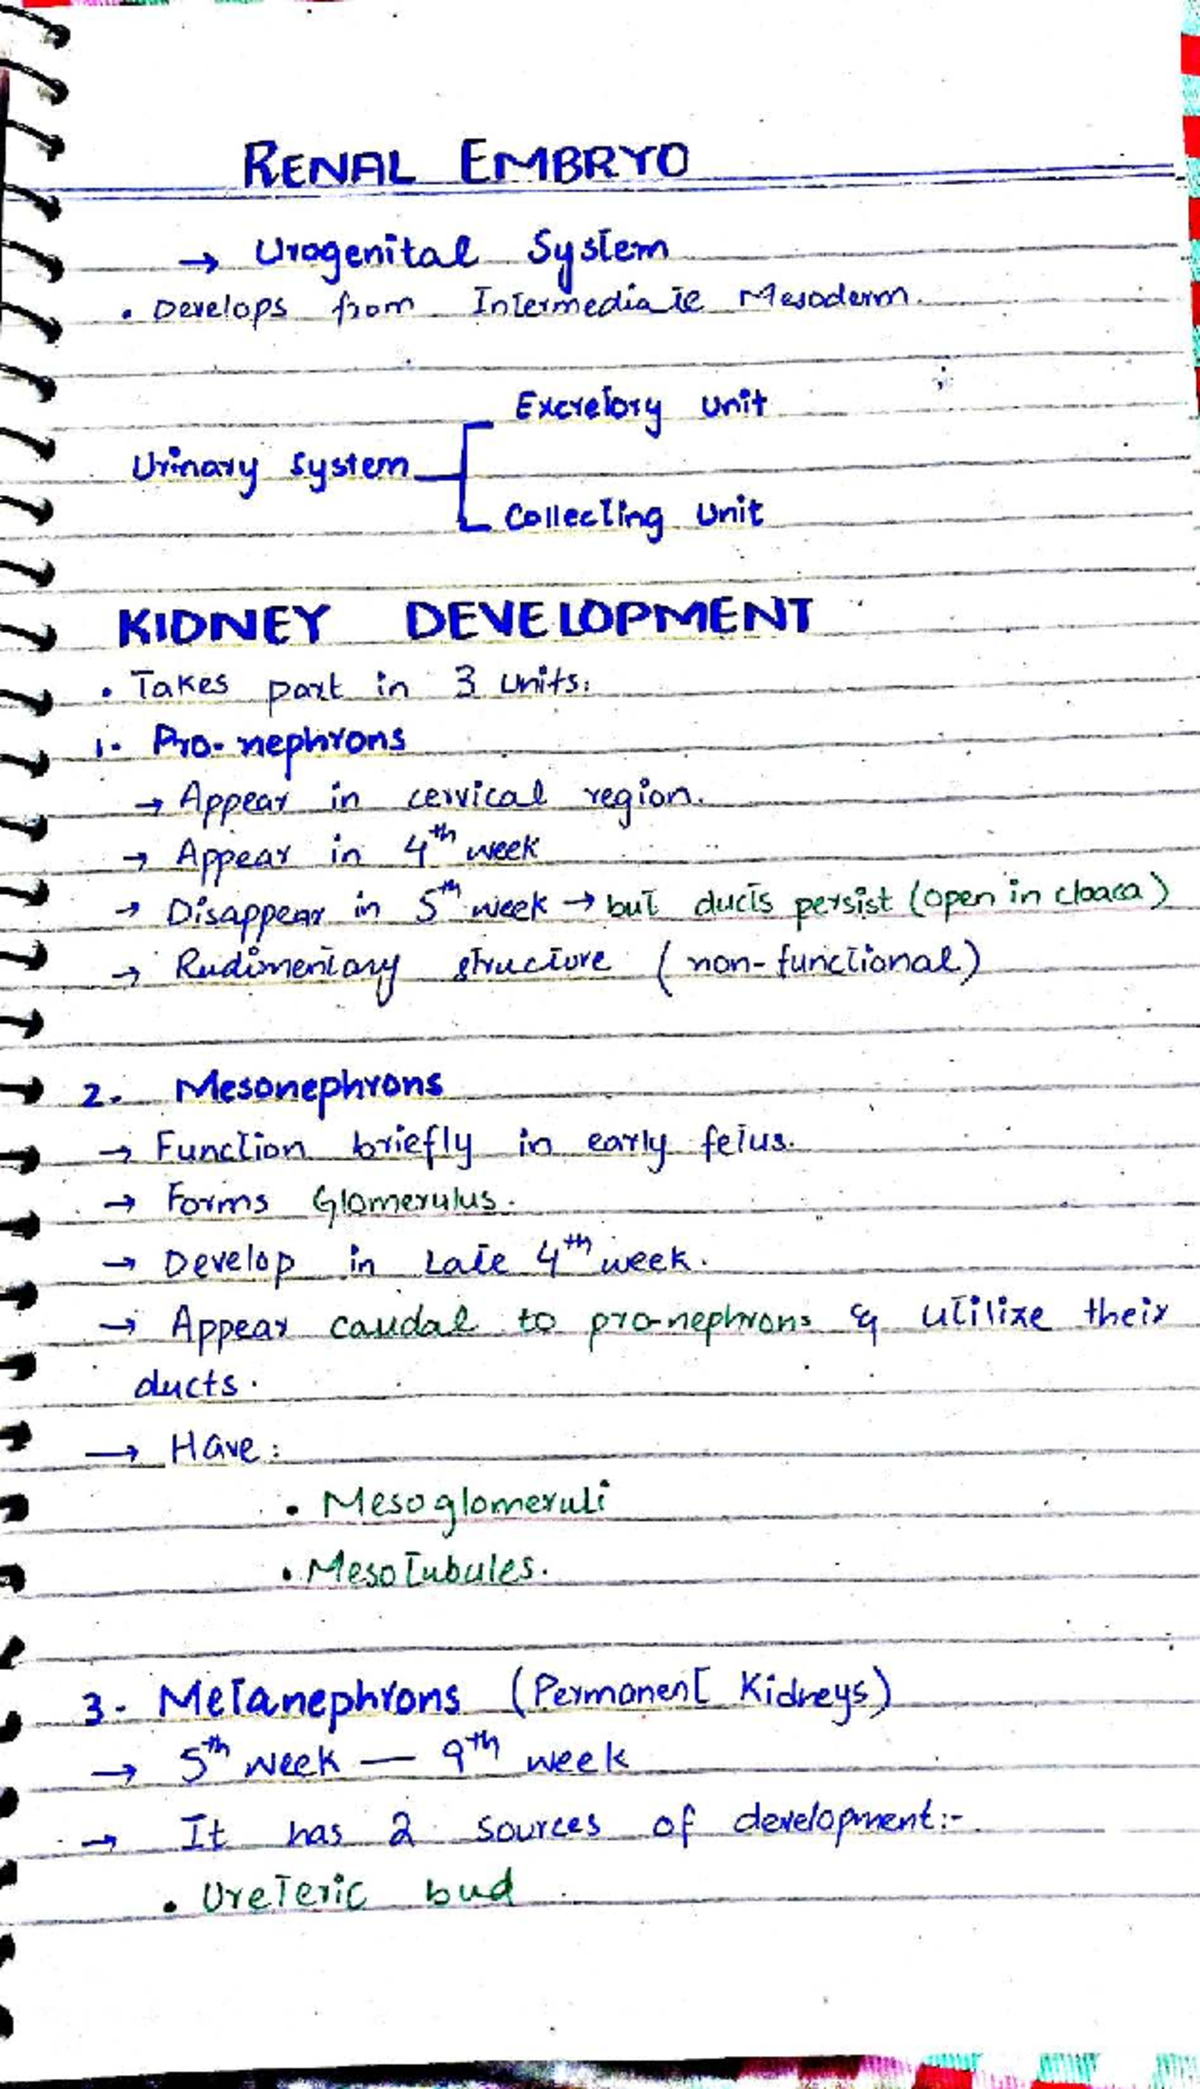 RENAL EMBRYO
→ Urogenital System
• Develops from Intermediate Mesoderm.
Excretory unit
Urinary system
Collecting unit
KIDNEY DEVELOPMENT
• Takes part in 3 units:
1. Pro-nephrons
→ Appear in cervical region.
→ Appear in 4th week
→ Disappear in 5th week → but ducts persist (open in cloaca)
→ Rudimentary structure (non-functional)
2. Mesonephrons
→ Function briefly in early fetus.
→ Forms Glomerulus.
→ Develop in Late 4th week.
→ Appear caudal to pro-nephrons & utilize their
ducts.
→ Have:
• Mesoglomeruli
• Mesotubules.
3. Metanephrons (Permanent Kidneys)
→ 5th week — 9th week
→ It has 2 sources of development:-
• Ureteric bud